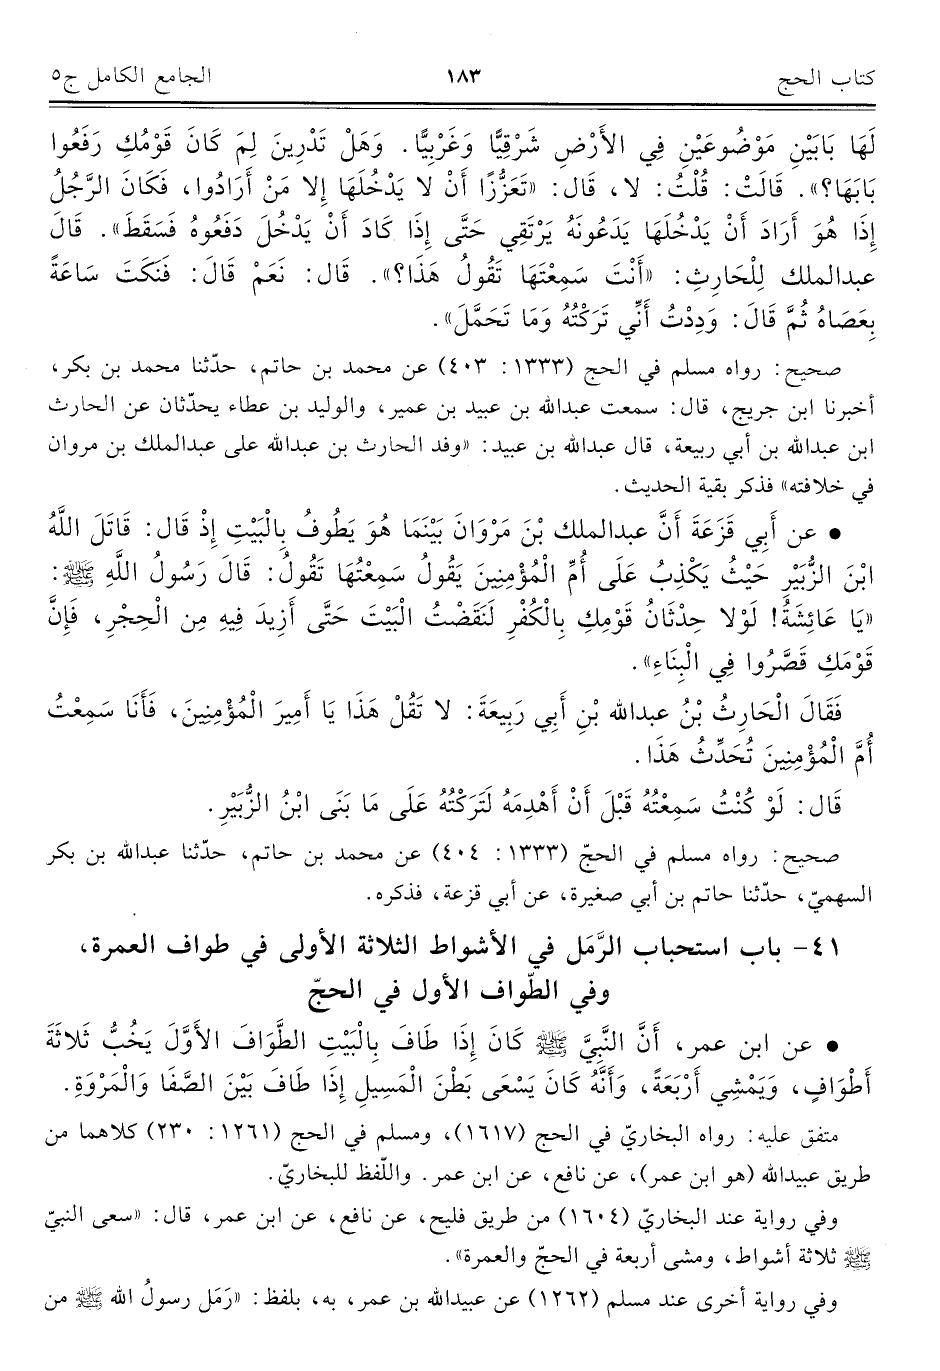 كتاب الحج ١٨٣ الجامع الكامل ج٥
لَهَا بَابَيْنِ مَوْضُوعَيْنِ فِي الأَرْضِ شَرْقِيًّا وَغَرْبِيًّا. وَهَلْ تَدْرِينَ لِمَ كَانَ قَوْمُكِ رَفَعُوا
بَابَهَا؟». قَالَتْ: قُلْتُ: لا، قَالَ: «تَعَزُّزًا أَنْ لا يَدْخُلَهَا إِلا مَنْ أَرَادُوا، فَكَانَ الرَّجُلُ
إِذَا هُوَ أَرَادَ أَنْ يَدْخُلَهَا يَدَعُونَهُ يَرْتَقِي حَتَّى إِذَا كَادَ أَنْ يَدْخُلَ دَفَعُوهُ فَسَقَطَ». قَالَ
عبدالملك لِلْحَارِثِ: «أَنْتَ سَمِعْتَهَا تَقُولُ هَذَا؟». قَالَ: نَعَمْ قَالَ: فَنَكَتَ سَاعَةً
بِعَصَاهُ ثُمَّ قَالَ: وَدِدْتُ أَنِّي تَرَكْتُهُ وَمَا تَحَمَّلَ».
صحيح: رواه مسلم في الحج (١٣٣٣: ٤٠٣) عن محمد بن حاتم، حدّثنا محمد بن بكر،
أخبرنا ابن جريج، قال: سمعت عبدالله بن عبيد بن عمير، والوليد بن عطاء يحدّثان عن الحارث
ابن عبدالله بن أبي ربيعة، قال عبدالله بن عبيد: «وفد الحارث بن عبدالله على عبدالملك بن مروان
في خلافته» فذكر بقية الحديث.
• عن أَبِي قَزَعَةَ أَنَّ عبدالملك بْنَ مَرْوَانَ بَيْنَمَا هُوَ يَطُوفُ بِالْبَيْتِ إِذْ قَال: قَاتَلَ اللَّهُ
ابْنَ الزُّبَيْرِ حَيْثُ يَكْذِبُ عَلَى أُمِّ الْمُؤْمِنِينَ يَقُولُ سَمِعْتُهَا تَقُولُ: قَالَ رَسُولُ اللَّهِ ﷺ:
«يَا عَائِشَةُ! لَوْلا حِدْثَانُ قَوْمِكِ بِالْكُفْرِ لَنَقَضْتُ الْبَيْتَ حَتَّى أَزِيدَ فِيهِ مِن الْحِجْرِ، فَإِنَّ
قَوْمَكِ قَصَّرُوا فِي الْبِنَاءِ».
فَقَالَ الْحَارِثُ بْنُ عبدالله بْنِ أَبِي رَبِيعَةَ: لا تَقُلْ هَذَا يَا أَمِيرَ الْمُؤْمِنِينَ، فَأَنَا سَمِعْتُ
أُمَّ الْمُؤْمِنِينَ تُحَدِّثُ هَذَا.
قَال: لَوْ كُنْتُ سَمِعْتُهُ قَبْلَ أَنْ أَهْدِمَهُ لَتَرَكْتُهُ عَلَى مَا بَنَى ابْنُ الزُّبَيْرِ.
صحيح: رواه مسلم في الحجّ (١٣٣٣: ٤٠٤) عن محمد بن حاتم، حدّثنا عبدالله بن بكر
السهميّ، حدّثنا حاتم بن أبي صغيرة، عن أبي قزعة، فذكره.
٤١- باب استحباب الرَّمَل في الأشواط الثلاثة الأولى في طواف العمرة،
وفي الطّواف الأول في الحجّ
• عن ابن عمر، أَنَّ النَّبِيَّ ﷺ كَانَ إِذَا طَافَ بِالْبَيْتِ الطَّوَافَ الأَوَّلَ يَخُبُّ ثَلاثَةَ
أَطْوَافٍ، وَيَمْشِي أَرْبَعَةً، وَأَنَّهُ كَانَ يَسْعَى بَطْنَ الْمَسِيلِ إِذَا طَافَ بَيْنَ الصَّفَا وَالْمَرْوَةِ.
متفق عليه: رواه البخاريّ في الحج (١٦١٧)، ومسلم في الحج (١٢٦١: ٢٣٠) كلاهما من
طريق عبيدالله (هو ابن عمر)، عن نافع، عن ابن عمر. واللّفظ للبخاريّ.
وفي رواية عند البخاريّ (١٦٠٤) من طريق فليح، عن نافع، عن ابن عمر، قال: «سعى النبيّ
ﷺ ثلاثة أشواط، ومشى أربعة في الحجّ والعمرة».
وفي رواية أخرى عند مسلم (١٢٦٢) عن عبيدالله بن عمر، به، بلفظ: «رَمَل رسولُ الله ﷺ من